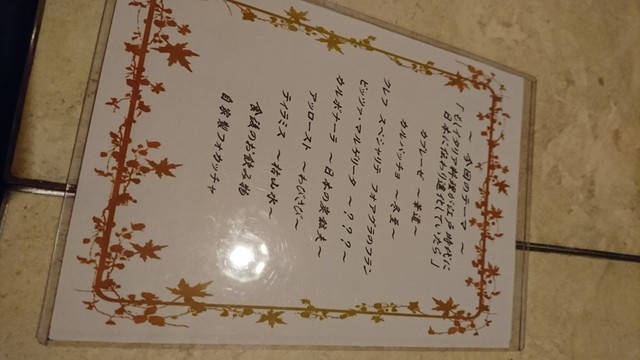 ～ 今回のテーマ ～
「もしイタリア料理が江戸時代に
日本に伝わり進化していたら」
カプレーゼ ～華道～
カルパッチョ ～水墨～
シェフ スペシャリテ フォアグラのフラン
ピッツァ マルゲリータ ～？？？～
カルボナーラ ～日本の炭鉱夫～
アッロースト ～わびさび～
ティラミス ～枯山水～
食後のお飲み物
自家製フォカッチャ